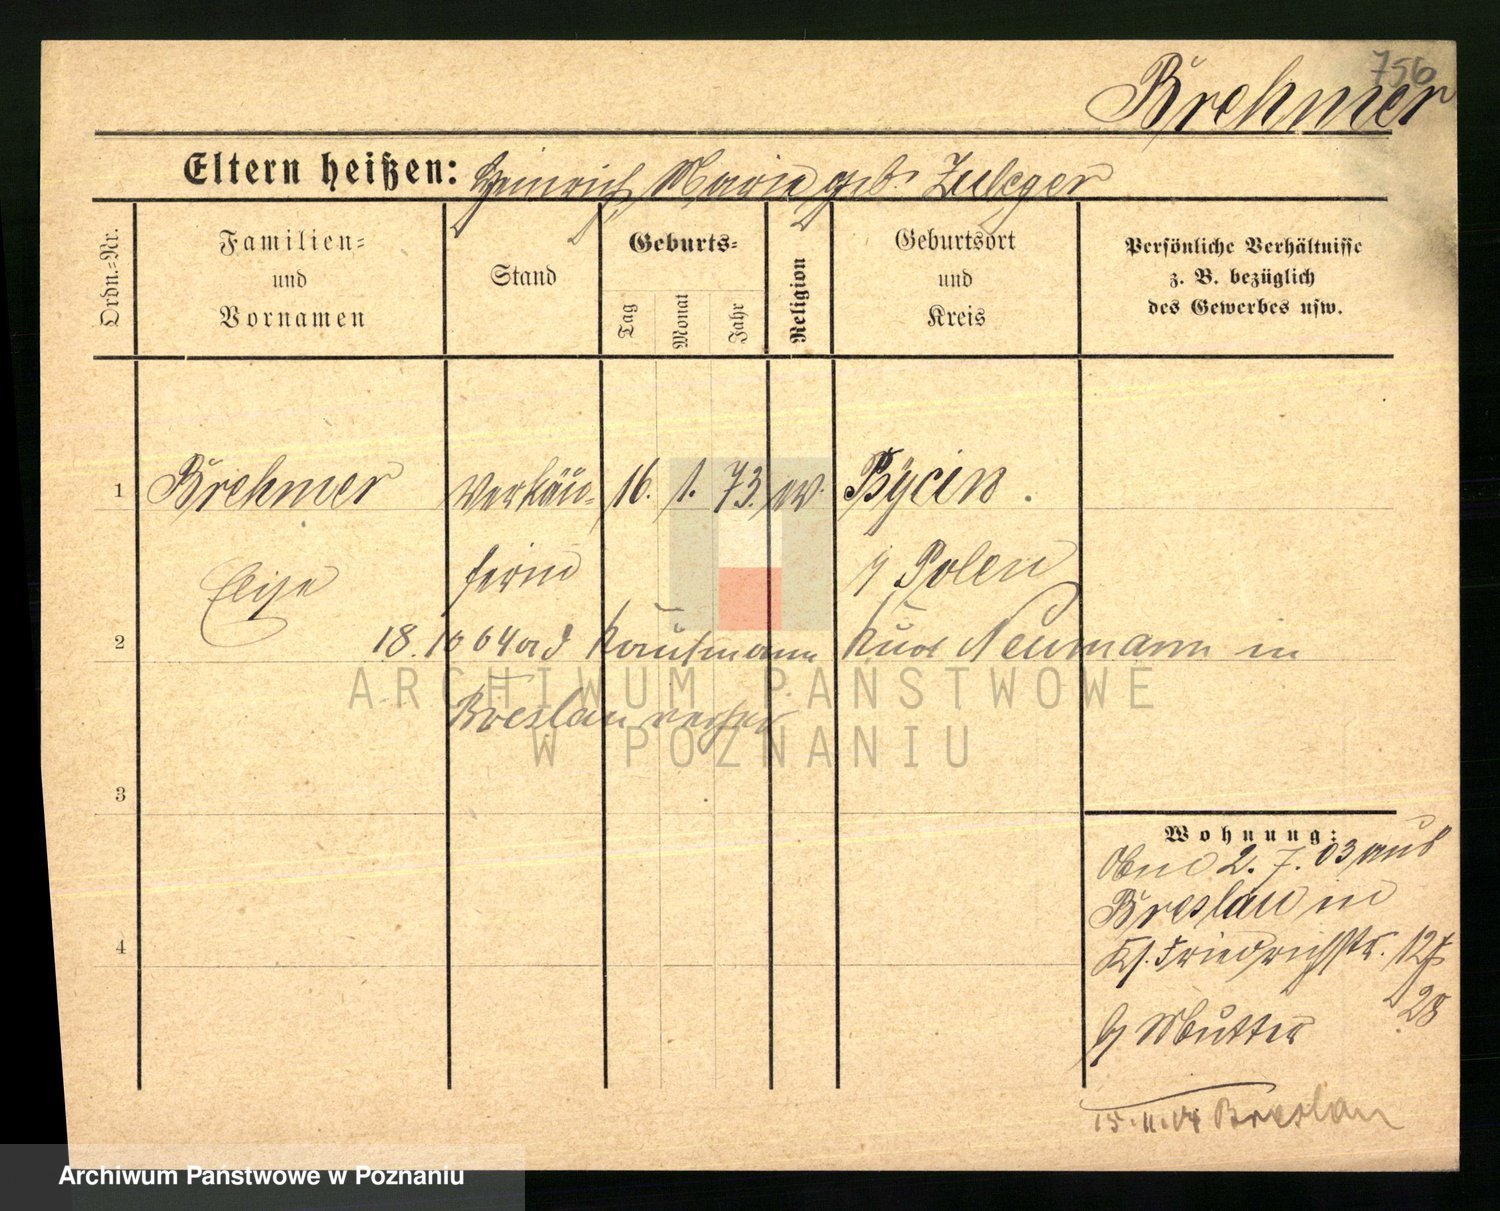 756
Brehmer
Eltern heißen: Heinrich, Marie geb.
Ordn.=Nr.
Familien=
und
Vornamen
Stand
Geburts=
Tag
Monat
Jahr
Religion
Geburtsort
und
Kreis
Persönliche Verhältnisse
z. B. bezüglich
des Gewerbes usw.
1 Brehmer Verkäu= 16. 1. 73. ev. Bycin.
Elise ferin Polen
2 18. 10 04 Kaufmann Neumann in
Breslau
3
4
Wohnung:
2. 7. 03 aus
Breslau in
Friedrichstr. 12
28
b/ Mutter
15.11.04 Breslau
ARCHIWUM PAŃSTWOWE
W POZNANIU
Archiwum Państwowe w Poznaniu